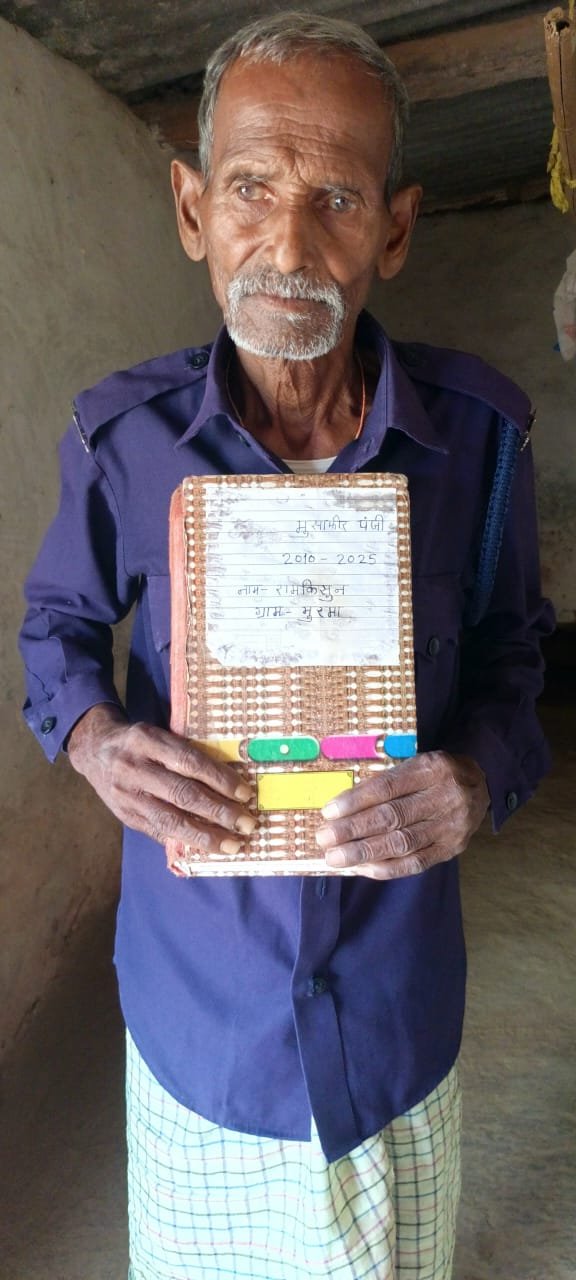 मुसाफीर पंजी
2010 - 2025
नाम - रामकिसुन
ग्राम - मुरमा